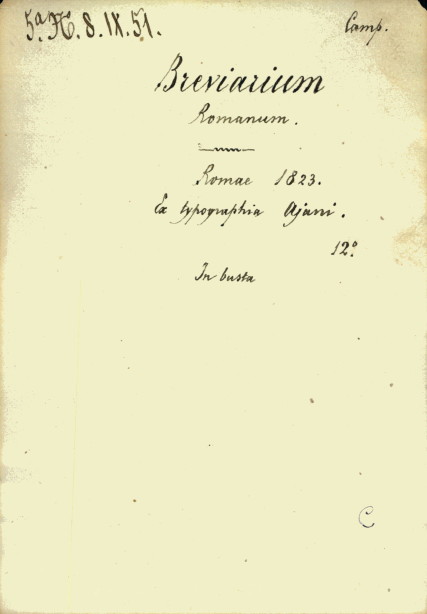 5.ª H. 8. IX. 51.
Camp.
Breviarium
Romanum.
Romae 1823.
Ex typographia Ajani.
12º
In busta
C